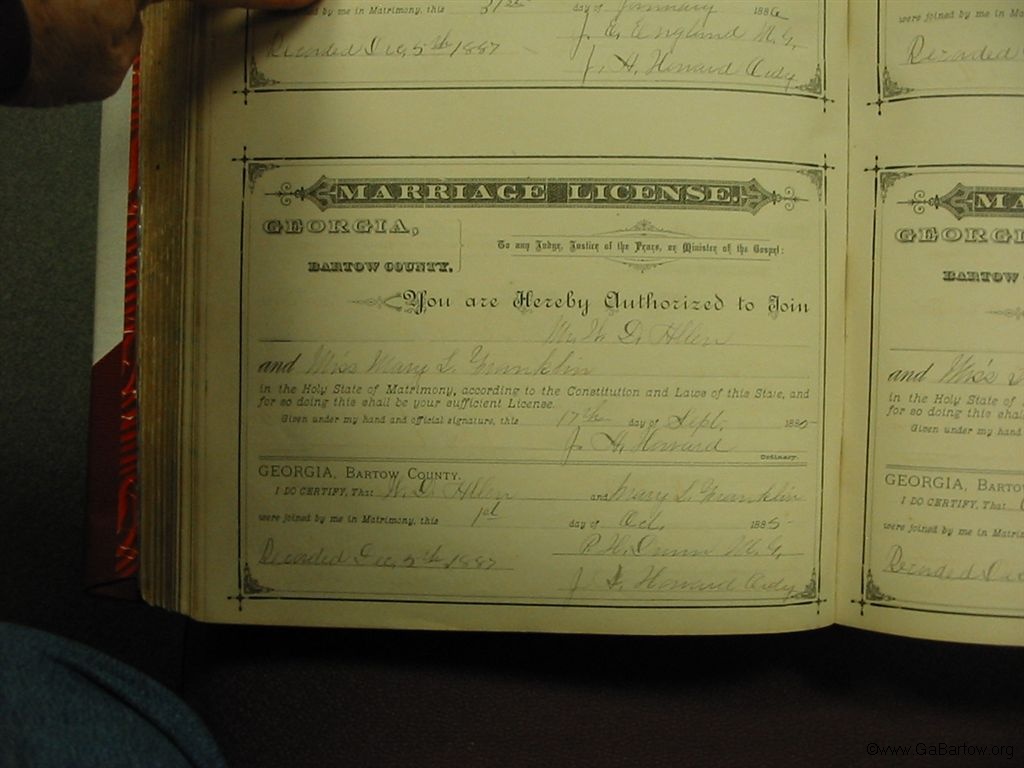 were joined by me in Matrimony, this 31st day of January 1886
J. E. England M.G.
Recorded Dec, 5th 1887
J. H. Howard Ordy
were joined by me in Ma
Recorded
MARRIAGE LICENSE.
GEORGIA,
BARTOW COUNTY.
To any Judge, Justice of the Peace, or Minister of the Gospel:
You are Hereby Authorized to Join
Mr W. D. Allen
and Miss Mary L. Franklin
in the Holy State of Matrimony, according to the Constitution and Laws of this State, and
for so doing this shall be your sufficient License.
Given under my hand and official signature, this 17th day of Sept, 1885
J. H. Howard
Ordinary.
GEORGIA, BARTOW COUNTY.
I DO CERTIFY, That W. D. Allen and Mary L. Franklin
were joined by me in Matrimony, this 1st day of Oct, 1885
Recorded Dec, 5th 1887
J. H. Howard Ordy
MA
GEORGI
BARTOW
and Miss
in the Holy State of
for so doing this shall
Given under my hand
GEORGIA, BARTOW
I DO CERTIFY, That
were joined by me in Matrim
Recorded Dec
©www.GaBartow.org